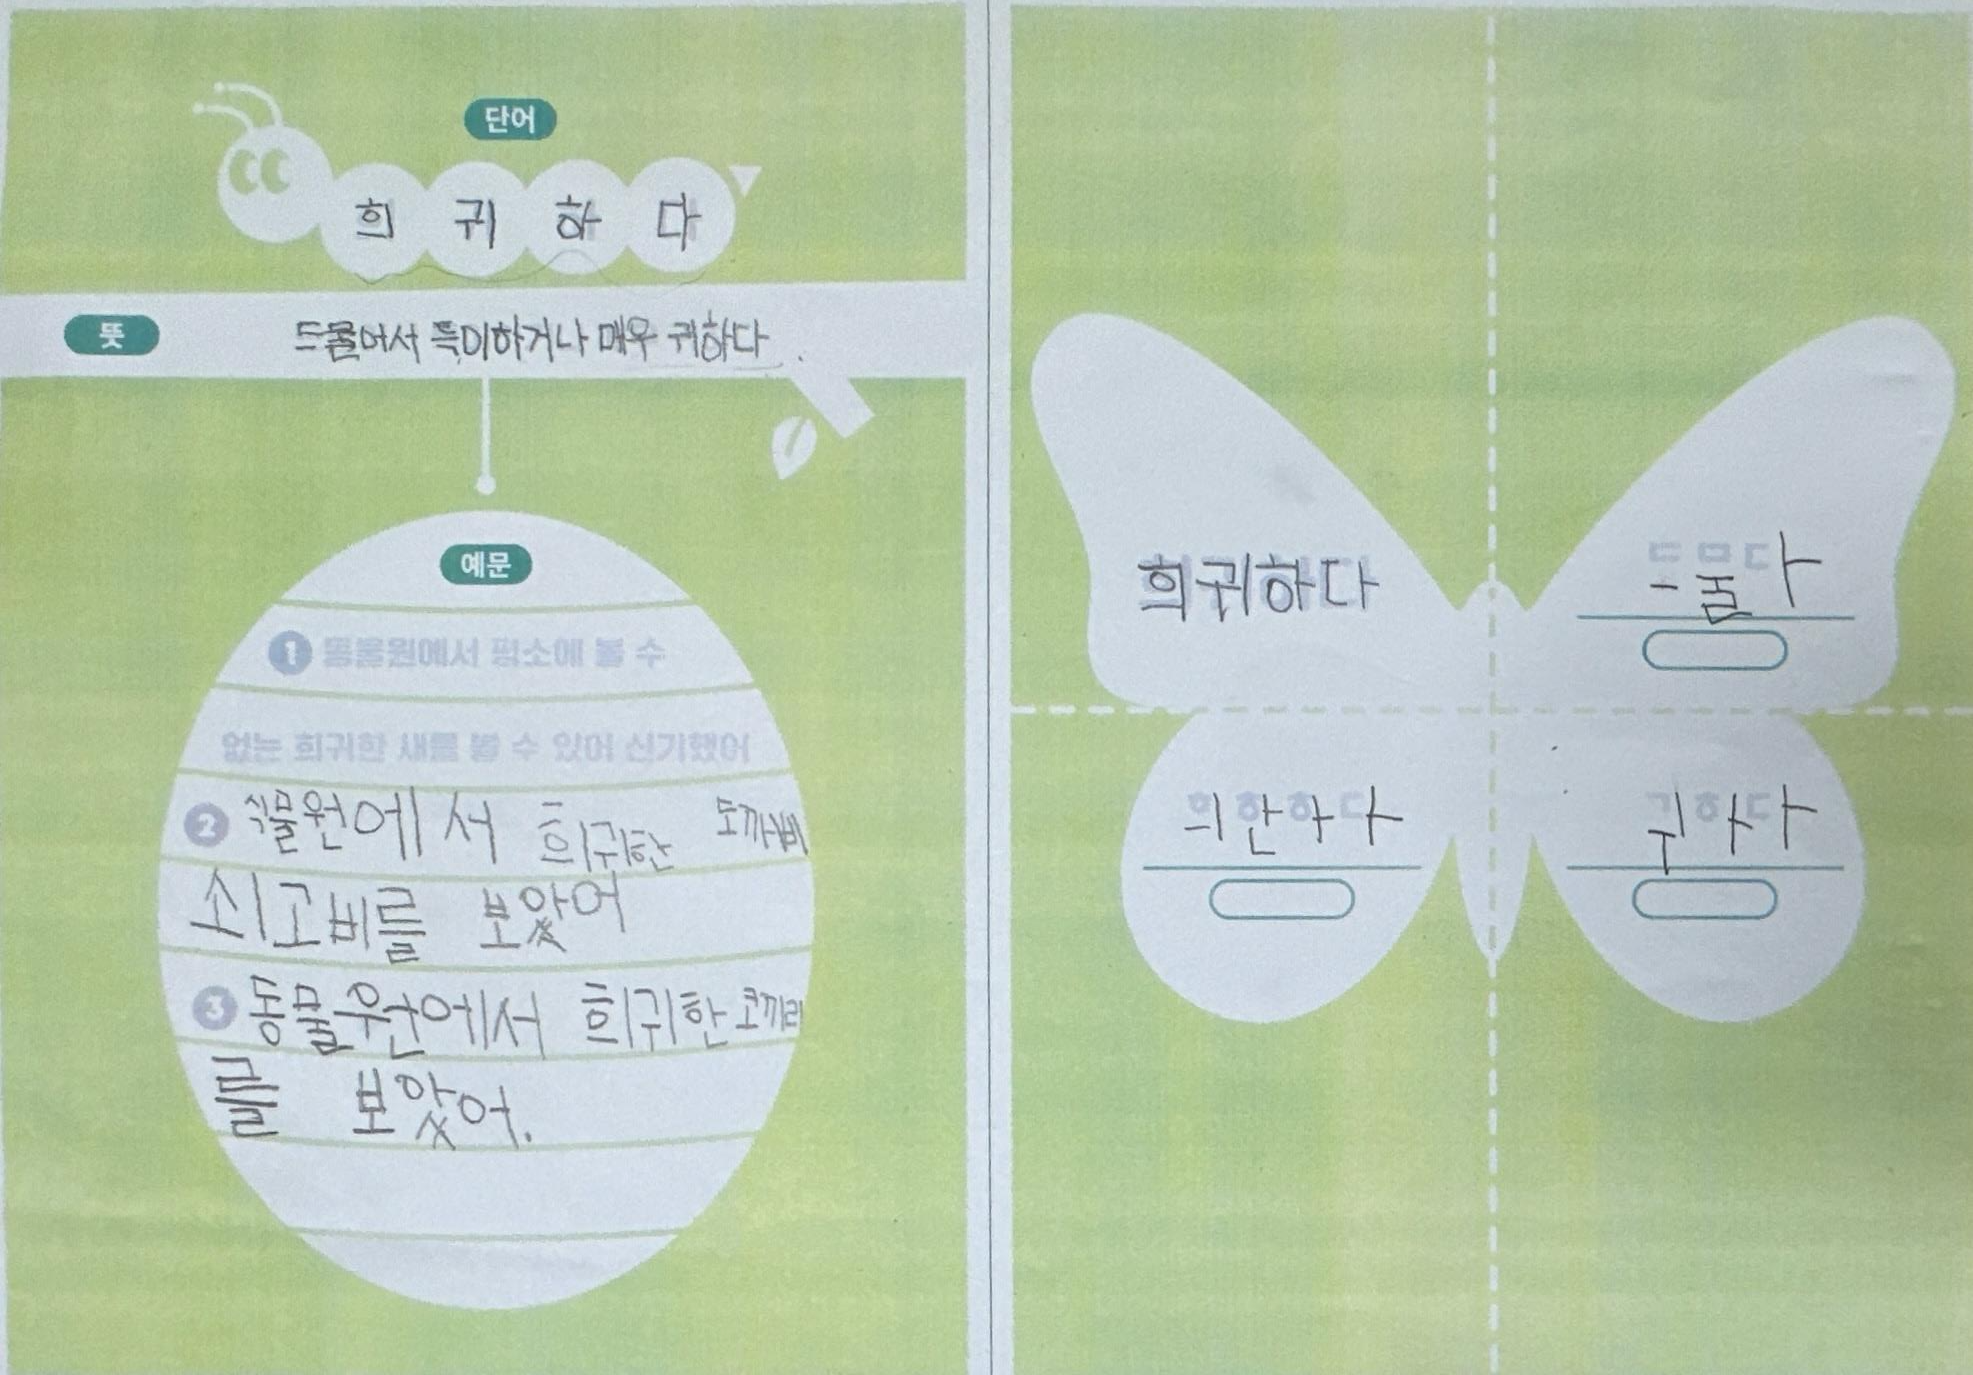 단어
희귀하다
뜻 드물어서 특이하거나 매우 귀하다.
예문
1 동물원에서 평소에 볼 수
없는 희귀한 새를 볼 수 있어 신기했어
2 식물원에서 희귀한 도깨비
쇠고비를 보았어
3 동물원에서 희귀한 코끼리
를 보았어.
희귀하다
드물다
희한하다
귀하다